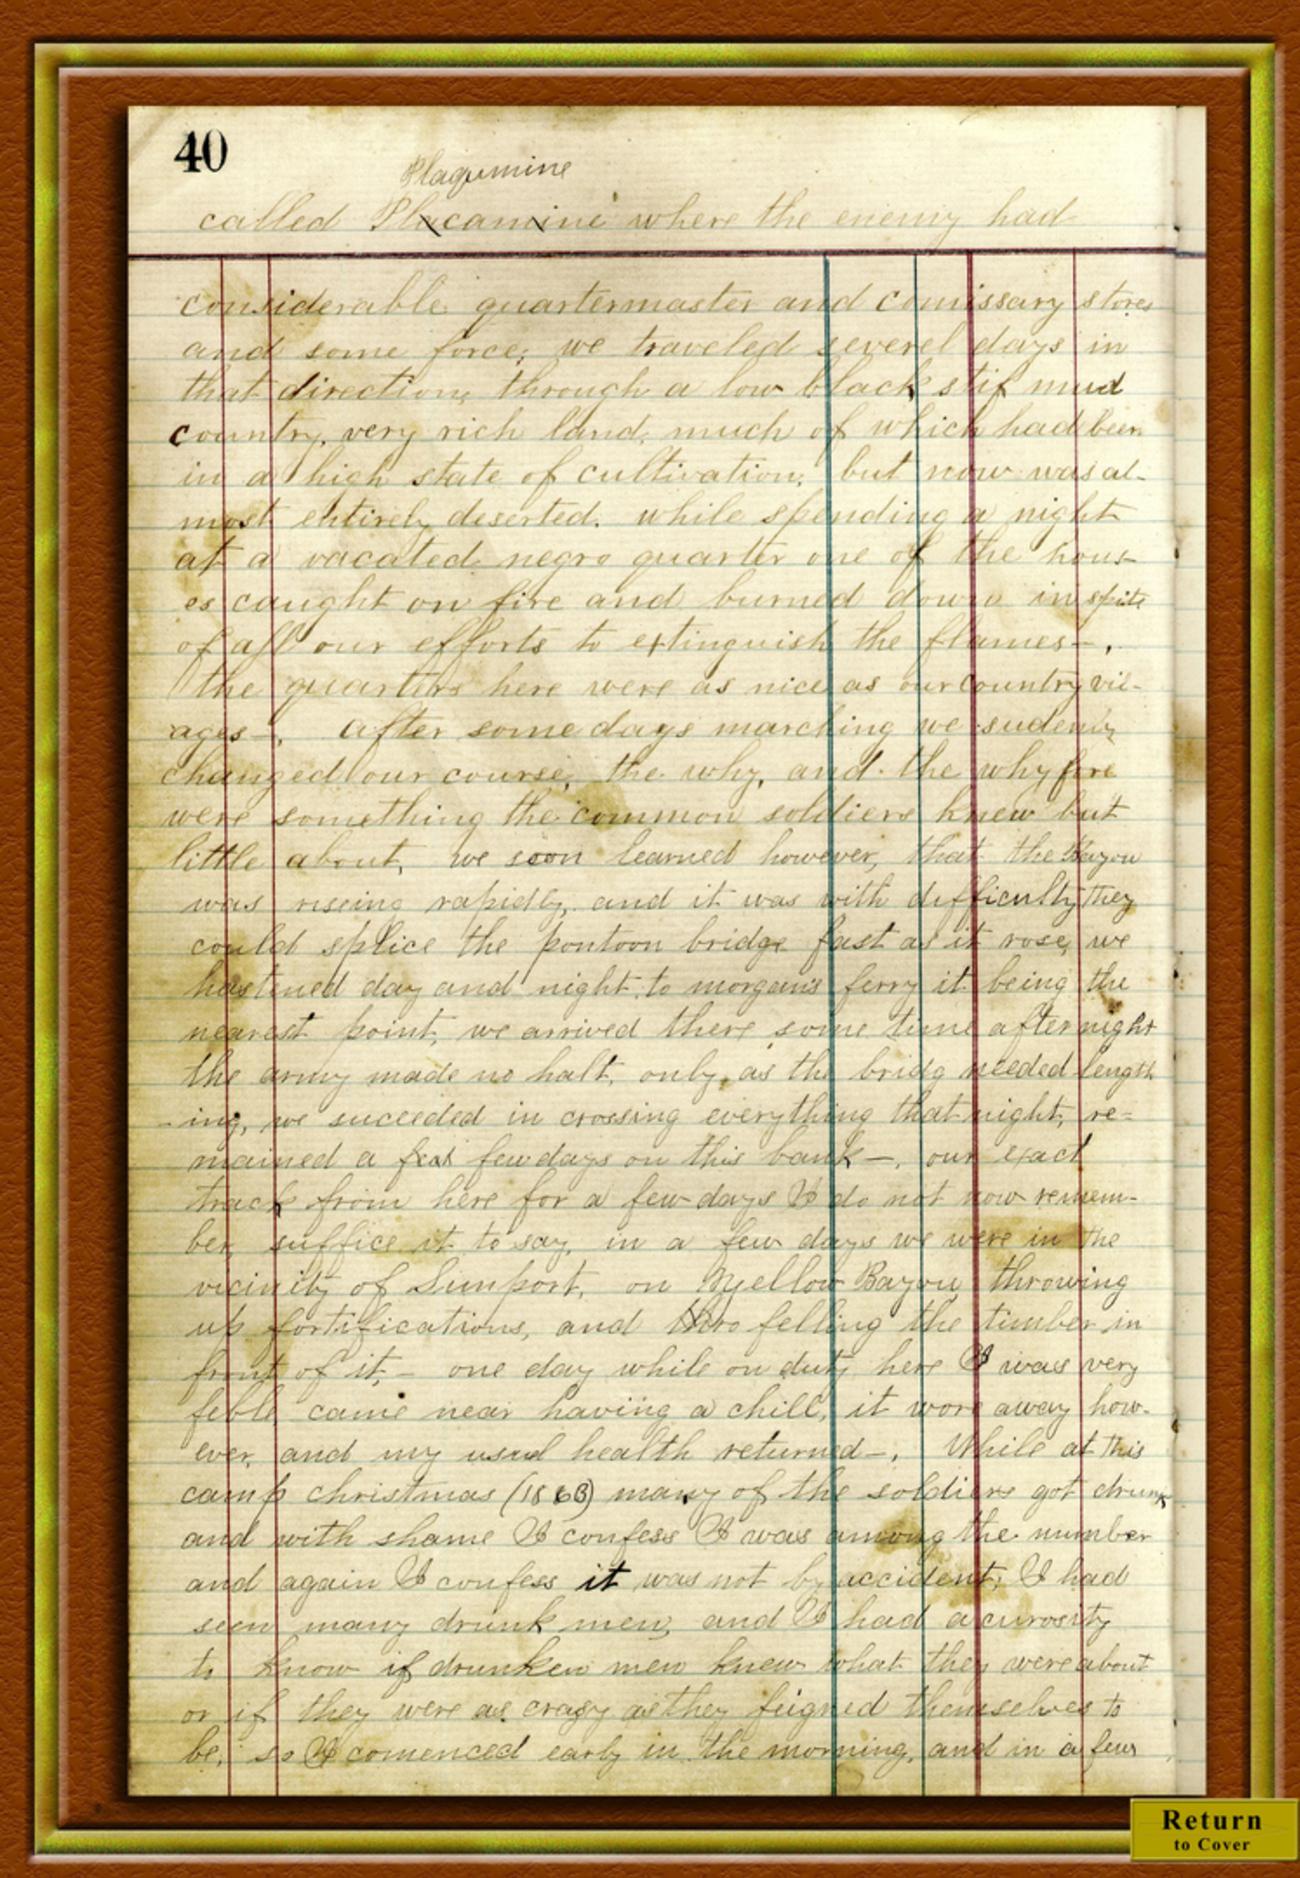 40
Plaqumine
called Placamine where the enemy had
considerable quartermaster and comissary stores
and some force; we traveled severel days in
that direction, through a low black stif mud
country, very rich land, much of which had been
in a high state of cultivation, but now was al-
most entirely deserted. while spending a night
at a vacated negro quarter one of the hous-
es caught on fire and burned down in spite
of all our efforts to extinguish the flames—.
the quarters here were as nice as our country vil-
ages—. after some days marching we sudenly
changed our course, the why, and the why fore
were something the common soldiers knew but
little about, we soon learned however, that the Bayou
was riseing rapidly, and it was with difficulty they
could splice the pontoon bridge fast as it rose, we
hastened day and night, to morgans ferry it being the
nearest point, we arrived there some time after night
the army made no halt, only, as the bridg needed length
-ing, we suceeded in crossing everything that night, re-
mained a few days on this bank—, our exact
track from here for a few days I do not now remem-
ber, suffice it to say, in a few days we were in the
vicinity of Simport, on Yellow Bayou, throwing
up fortifications, and thro felling the timber in
front of it,— one day while on duty here I was very
feble came near having a chill, it wore away how-
ever, and my usual health returned—. While at this
camp christmas (1863) many of the soldiers got drunk
and with shame I confess I was among the number
and again I confess it was not by accident; I had
seen many drunk men, and I had a curosity
to know if drunken men knew what they were about
or if they were as crasy as they feigned themselves to
be, so I comenced early in the morning, and in a few
Return
to Cover